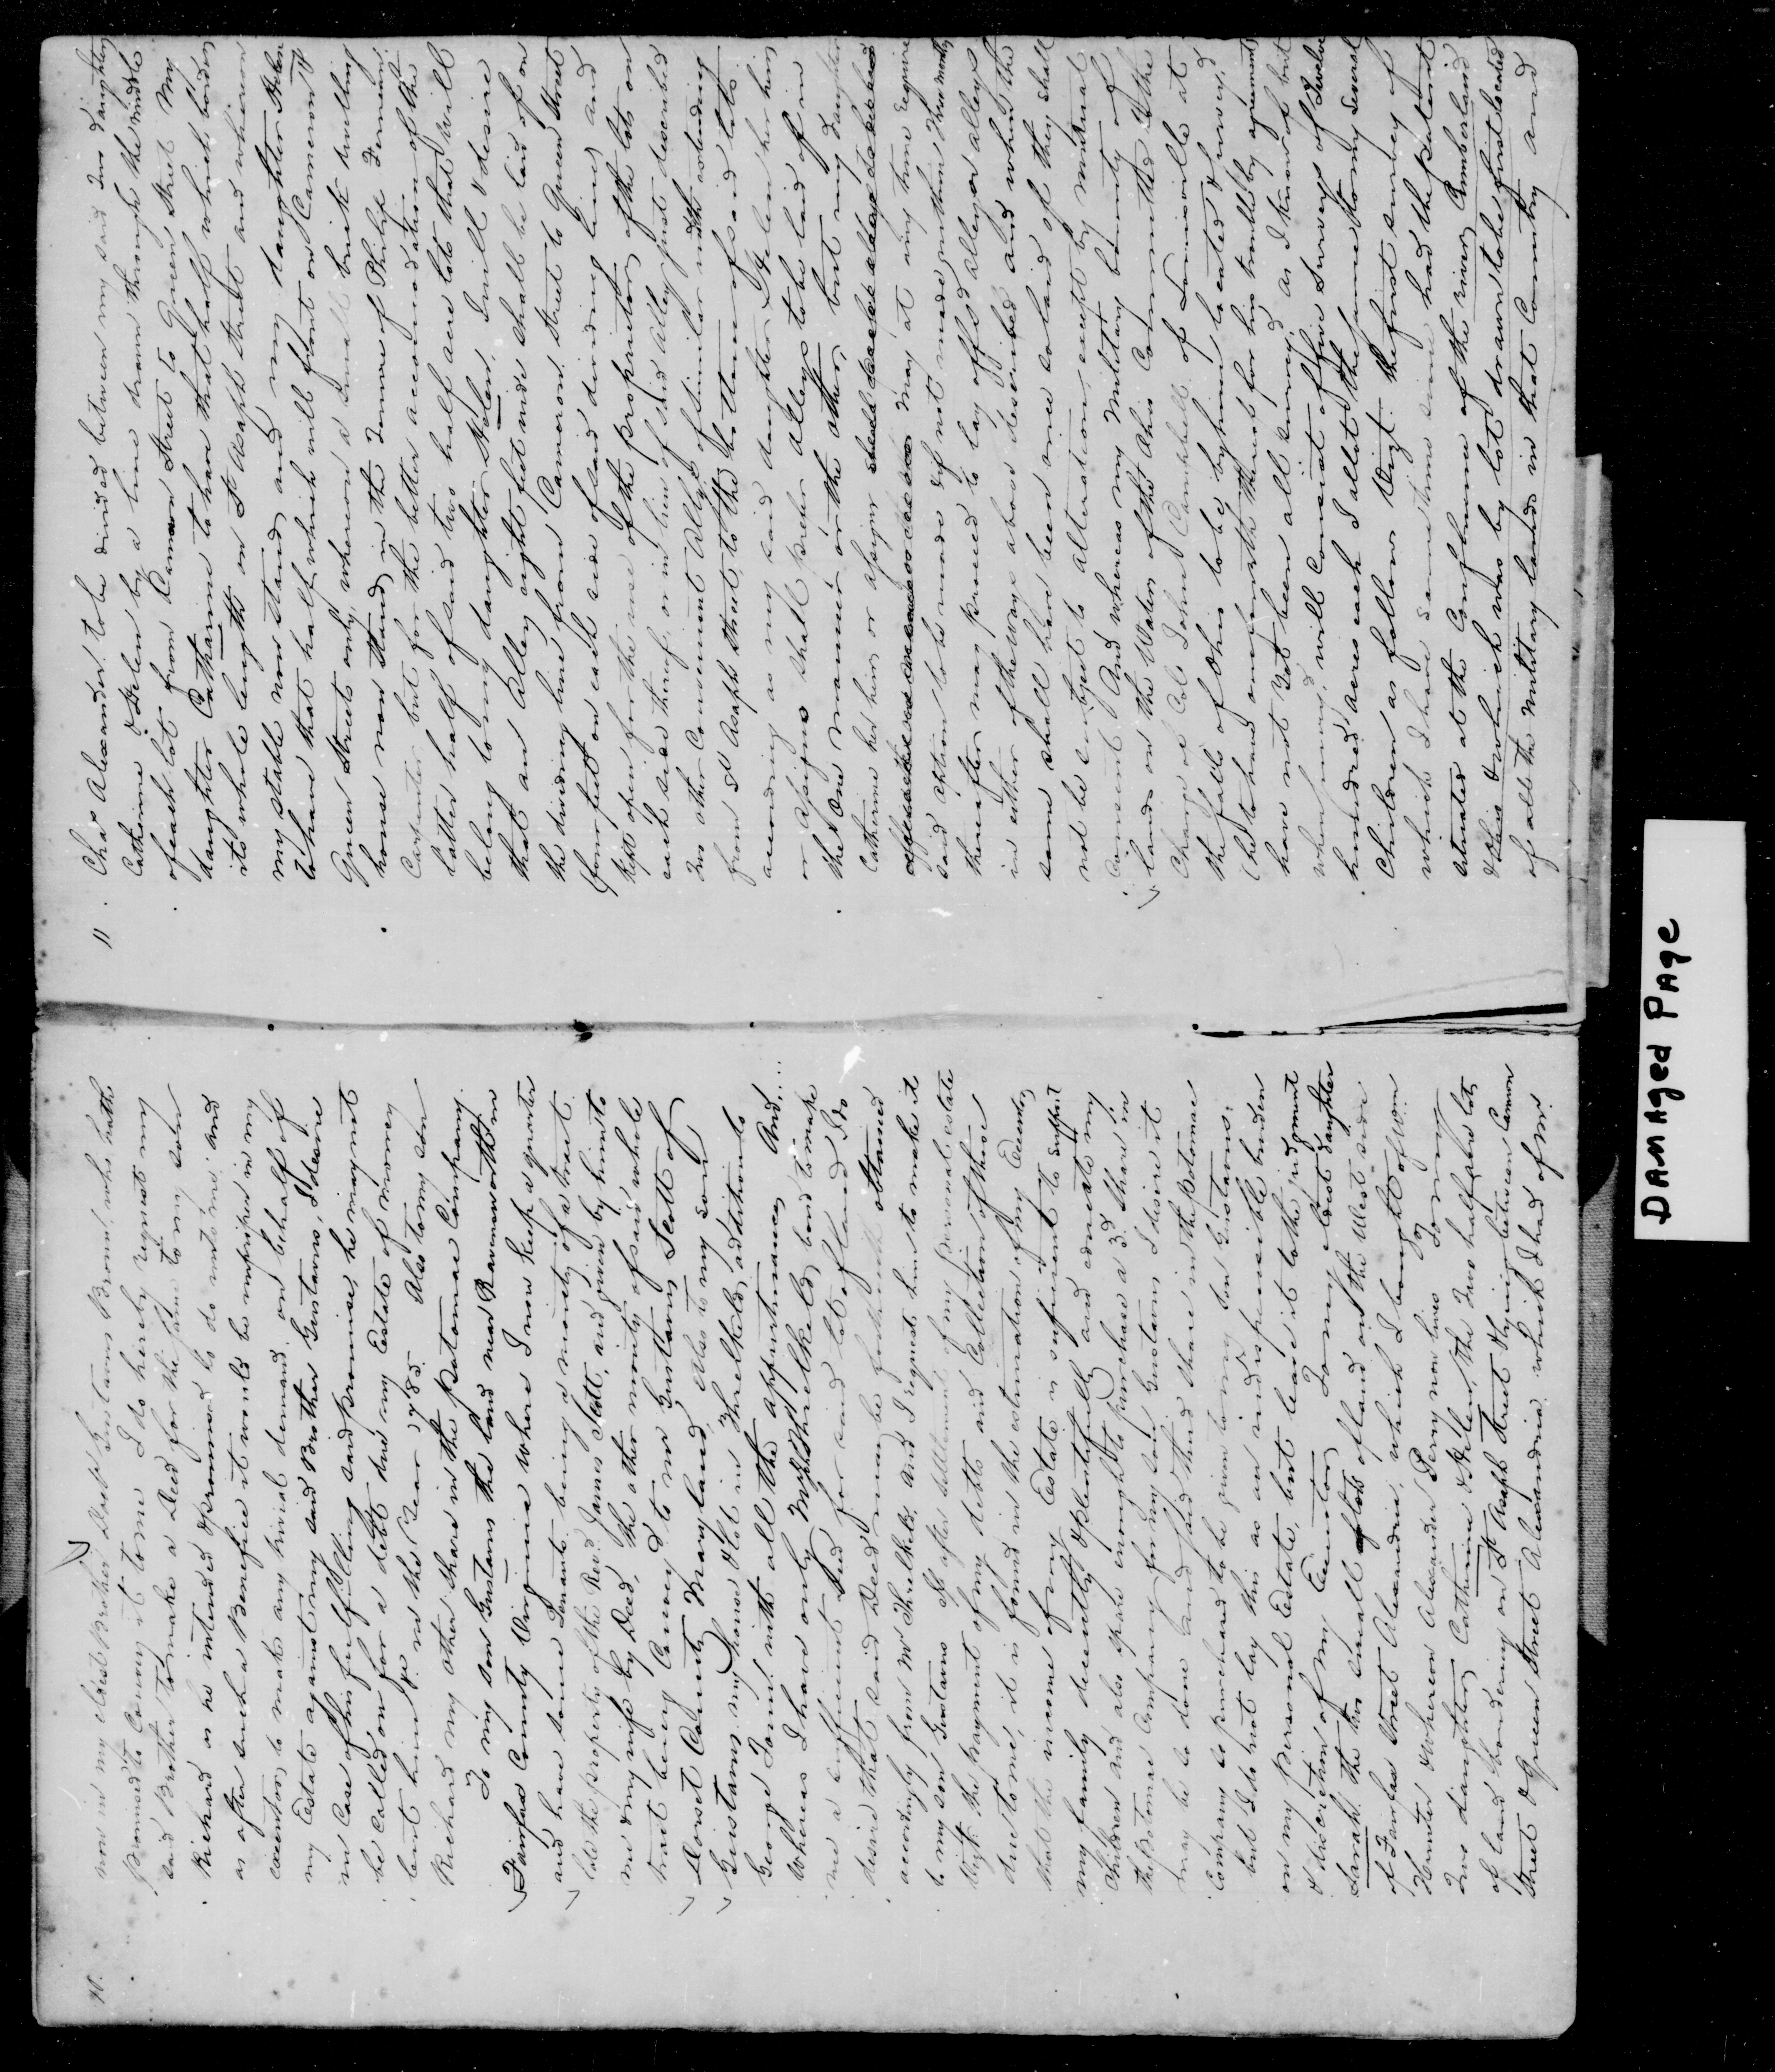 10.
now in my eldest Brother Doctr Gustavus Brown, who hath
promised to Convey it to me I do hereby request my
said Brother to make a Deed for the same to my son
Richard as he intended & promised to do unto me and
as after such a Benefice it would be in my
executors to make any trivial demand on behalf of
my Estate against my said Brother Gustavus, I desire
in Case of his fulfilling said promise, he may not
be called on for a debt due my Estate of money
lent him in the Year 1785. Also to my son
Richard my other share in the Potomac Company.
To my son Gustavus the land near Ravensworth in
Fairfax County Virginia where I now keep a quarter
and have some Tenants being a moiety of a tract
late the property of the Revd. James Scott, and given by him to
me & my wife by Deed, the other moiety of said whole
tract being Convey'd to mr Gustavus Scott of
Dorset County Maryland, Also to my son
Gustavus my house & lot in Threlkelds addition to
George Town with all the appurtenances And....
Whereas I have only Mr Threlkelds bond to make
me a sufficient Deed for said lot of land I do
desire that said Deed may be forthwith obtained
accordingly from Mr Threlkeld, and I request him to make it
to my son Gustavus If after settlement of my personal estate
Vizt. the payment of my debts and Collection of those
due to me, it is found in the estimation of my Executors,
that the income of my Estate is sufficient to support
my family decently & plentifully and educate my
Children and also spare enough to purchase a 3d. share in
the Potomac Company for my son Gustavus I desire it
may be so done and said third share in the Potomac
Company so purchased to be given to my son Gustavus,
but I do not lay this as an indispensible burden
on my personal Estate, but leave it to the judgment
& discretion of my Executors, To my eldest daughter
Sarah, the two small lots of land on the West side
of Fairfax Street Alexandria, which I bought of Wm
Hunter & whereon Alexander Perry now lives To my
Two daughters Catherine & Helen, the Two half acre lots
of land bordering on St Asaph Street & lying between Cameron
Street & Queen Street Alexandria which I had of Mr.
11.
Chas Alexander to be divided between my said Two daughters
Catherine & Helen by a line drawn through the middle
of each lot from Cameron Street to Queen Street My
daughter Catharine to have that half which borders
its whole length on St Asaph street and whereon
my stable now stands and my daughter Helen
to have that half which will front on Cameron &
Queen Streets only, whereon a small brick dwelling
house now stands in the Tenure of Philip
Carpenter but for the better accommodation of the
latter half of said two half acre lots that will
belong to my daughter Helen, I will & desire
that an Alley eight feet wide shall be laid off on
the dividing line from Cameron Street to Queen Street
(four feet on each side of said dividing line) and
kept open for the use of the proprietors of the lots on
each side thereof, or in lieu of said Alley just described
Two other Convenient Alleys of similar width extending
from St Asaph Street, to the bottom of said lots
according as my said daughter Helen her heirs
or assigns shall prefer Alleys to be laid off in
the One manner or the other, but my daughter
Catherine her heirs or assigns
may at any time require
said option to be made & if not made within Three months
thereafter may proceed to lay off said alley or alleys
in either of the ways above described and when the
same shall have been once so laid off they shall
not be subject to alteration except by mutual
Consent And whereas my Military bounty of
lands on the Waters of the Ohio Committed to the
Charge of Col. John Campbell of Louisville at
the falls of Ohio to be by him located & surveyd,
(he to have one fourth thereof for his trouble by agreement)
have not yet been all survey'd, as I know of but
when survey'd, will Consist of five Surveys of Twelve
hundred acres each I allot the same to my several
Children as follows Vizt. the first survey of
which I have some time since had the patent
situated at the Confluence of the rivers Cumberland
& Ohio & which was by lot drawn to be first located
of all the military lands in that Country and
DAMAged PAge